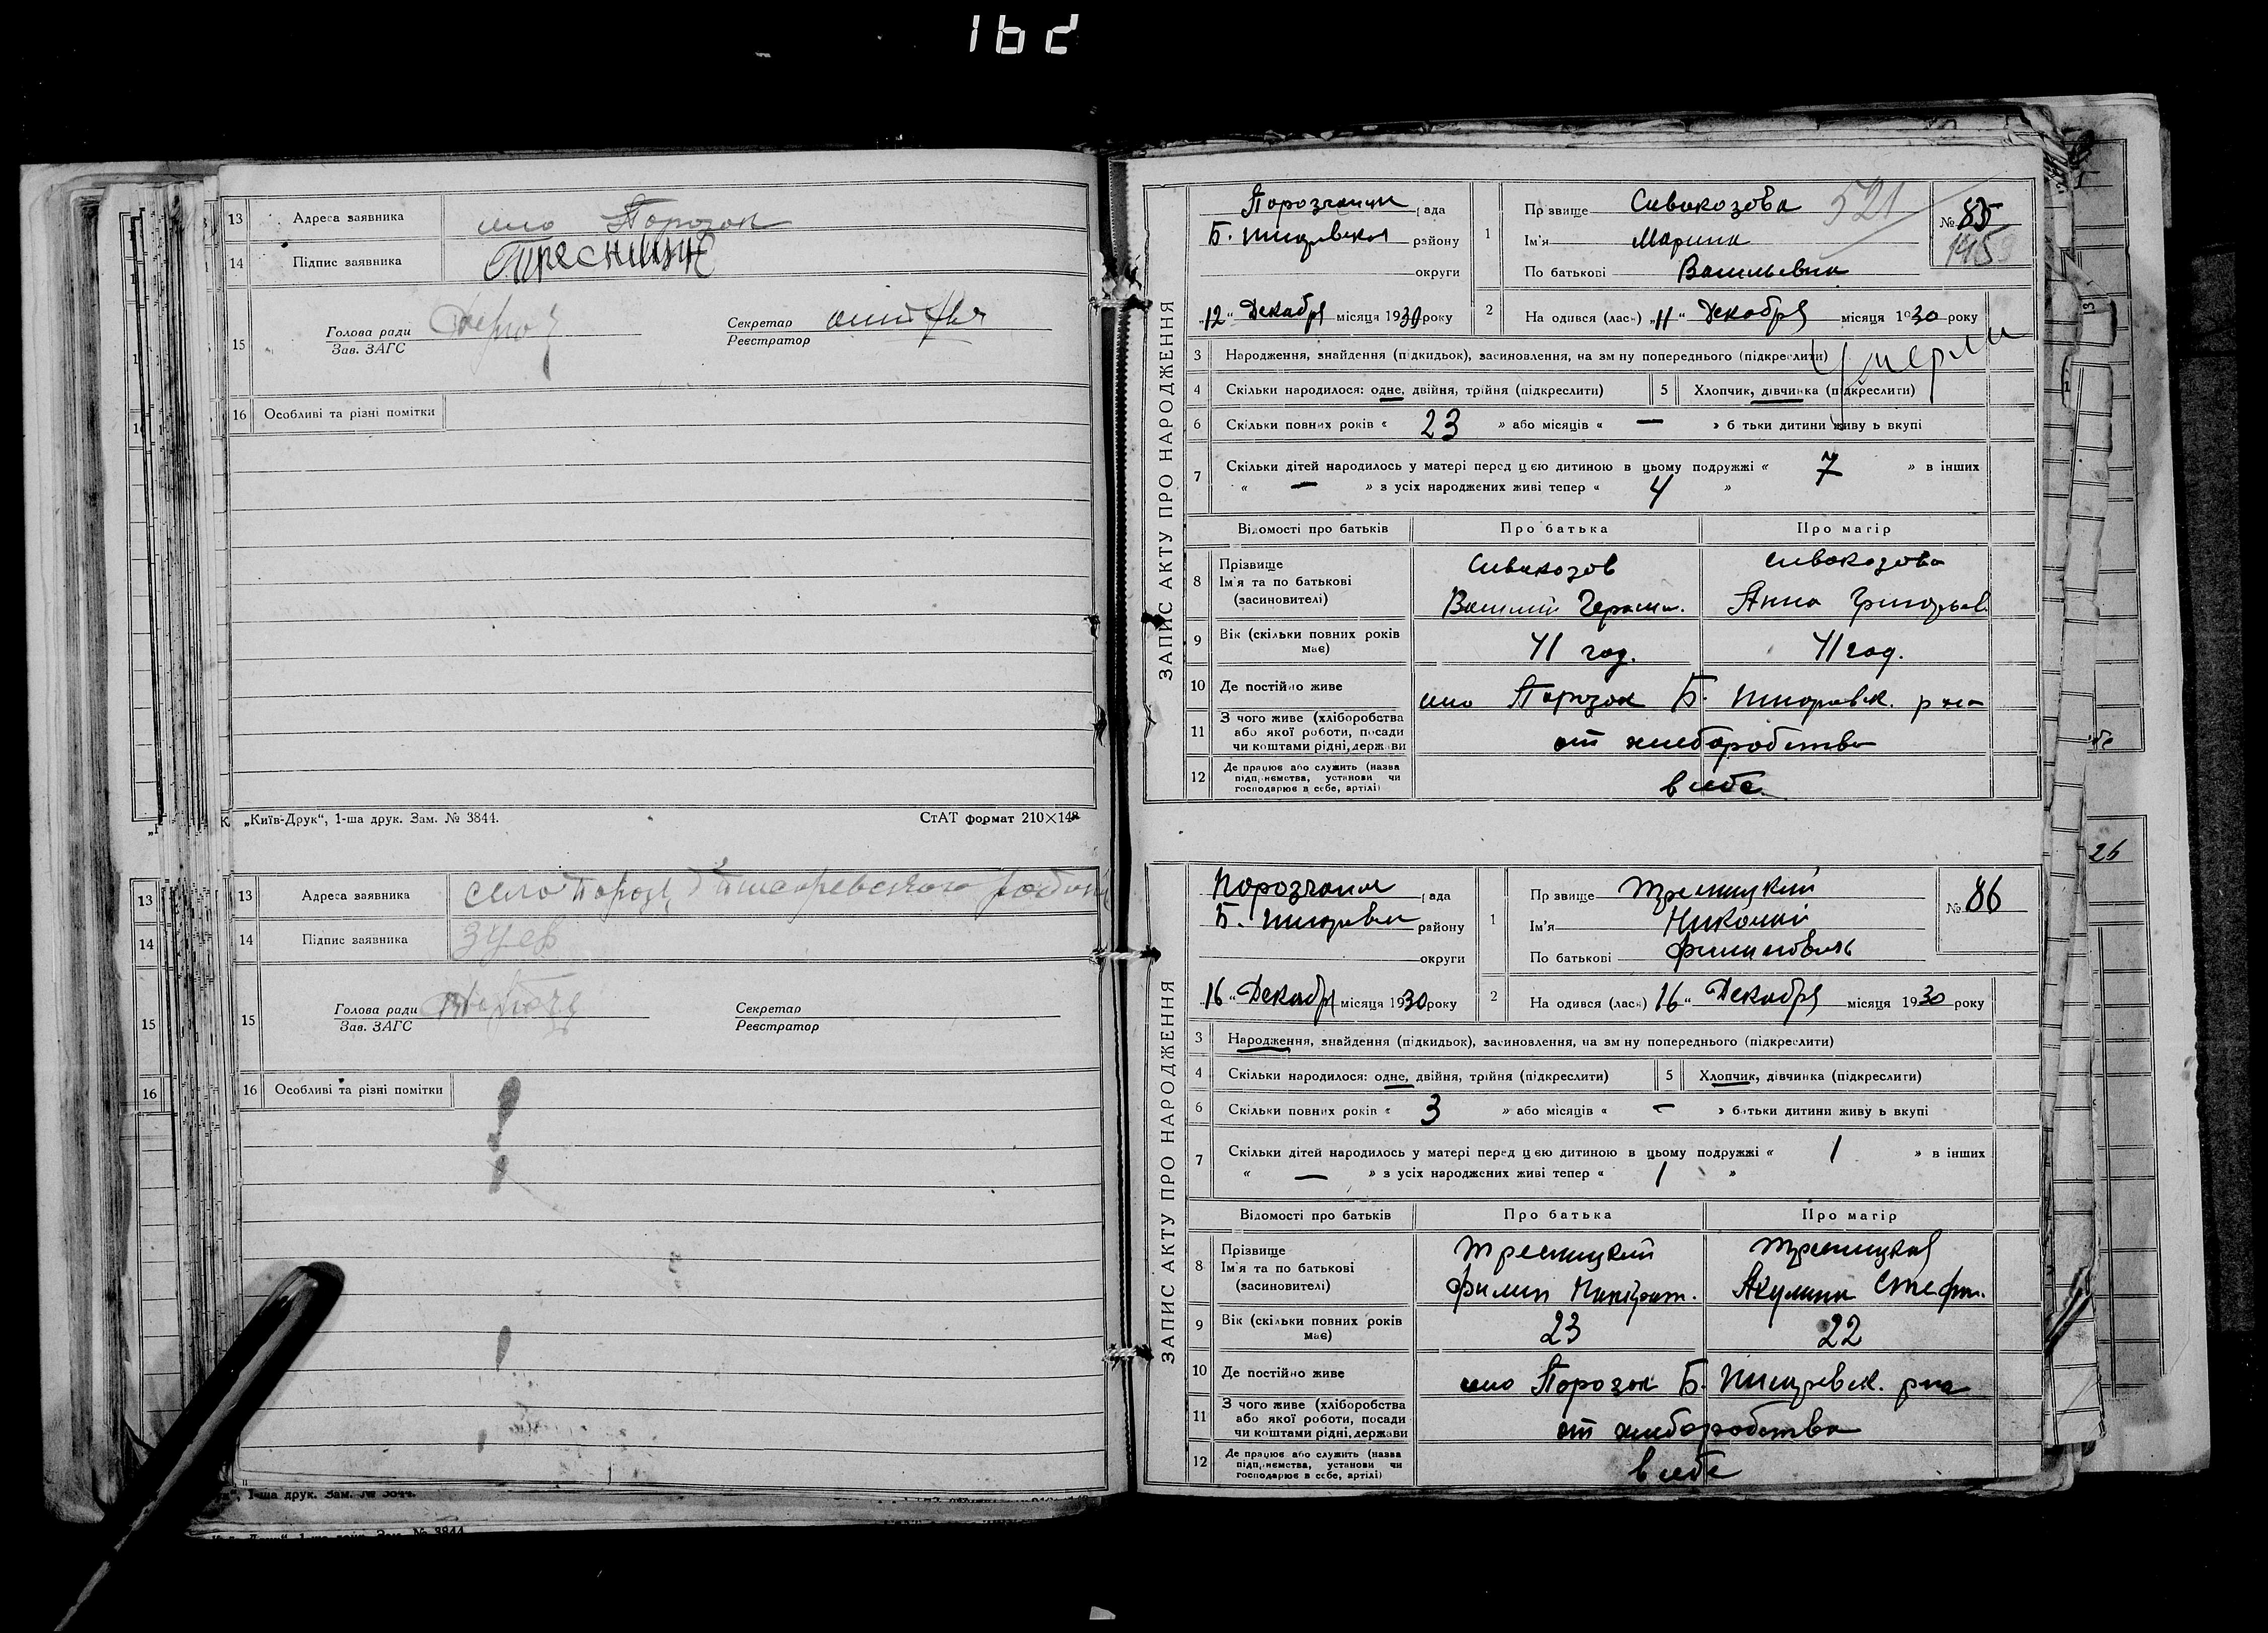 162
13 Адреса заявника село Порозок
14 Підпис заявника
15 Голова ради
Зав. ЗАГС
Секретар
Реєстратор
16 Особливі та різні помітки
„Київ-Друк“, 1-ша друк. Зам. № 3844.
СтАТ формат 210×148
13 Адреса заявника село
14 Підпис заявника
15 Голова ради
Зав. ЗАГС
Секретар
Реєстратор
16 Особливі та різні помітки
ЗАПИС АКТУ ПРО НАРОДЖЕННЯ
рада
Б. району
округи
„12“ Декабря місяця 1930 року
1 Прізвище Сивокозова
Ім'я Марина
По батькові Васильевна
521
№ 85
2 На одився (лась) „11“ Декабря місяця 1930 року
3 Народження, знайдення (підкидьок), засиновлення, на зм ну попереднього (підкреслити)
Умерли
4 Скільки народилося: одне, двійня, трійня (підкреслити)
5 Хлопчик, дівчинка (підкреслити)
6 Скільки повних років « 23 » або місяців « — » б тьки дитини живу ь вкупі
7 Скільки дітей народилось у матері перед цією дитиною в цьому подружжі « 7 » в інших
« — » з усіх народжених живі тепер « 4 »
Відомості про батьків Про батька Про матір
8 Прізвище
Ім'я та по батькові
(засиновителі)
Сивокозов
Василий Герасим.
Сивокозова
Анна Григорьев.
9 Вік (скільки повних років має) 41 год. 41 год.
10 Де постійно живе село Порозок Б. р на
11 З чого живе (хліборобства
або якої роботи, посади
чи коштами рідні, держави
от хлеборобства
12 Де працює або служить (назва
підприємства, установи чи
господарює в себе, артілі)
в себе
ЗАПИС АКТУ ПРО НАРОДЖЕННЯ
рада
Б. району
округи
„16“ Декабря місяця 1930 року
1 Прізвище Тресницкий
Ім'я Николай
По батькові Филипович
№ 86
2 На одився (лась) 16“ Декабря місяця 1930 року
3 Народження, знайдення (підкидьок), засиновлення, на зм ну попереднього (підкреслити)
4 Скільки народилося: одне, двійня, трійня (підкреслити)
5 Хлопчик, дівчинка (підкреслити)
6 Скільки повних років « 3 » або місяців « — » батьки дитини живу ь вкупі
7 Скільки дітей народилось у матері перед цією дитиною в цьому подружжі « 1 » в інших
« — » з усіх народжених живі тепер « 1 »
Відомості про батьків Про батька Про матір
8 Прізвище
Ім'я та по батькові
(засиновителі)
Тресницкий
Филип Панкрат.
Тресницкая
Акулина Стефан.
9 Вік (скільки повних років має) 23 22
10 Де постійно живе село Порозок Б. р на
11 З чого живе (хліборобства
або якої роботи, посади
чи коштами рідні, держави
от хлеборобства
12 Де працює або служить (назва
підприємства, установи чи
господарює в себе, артілі)
в себе
26